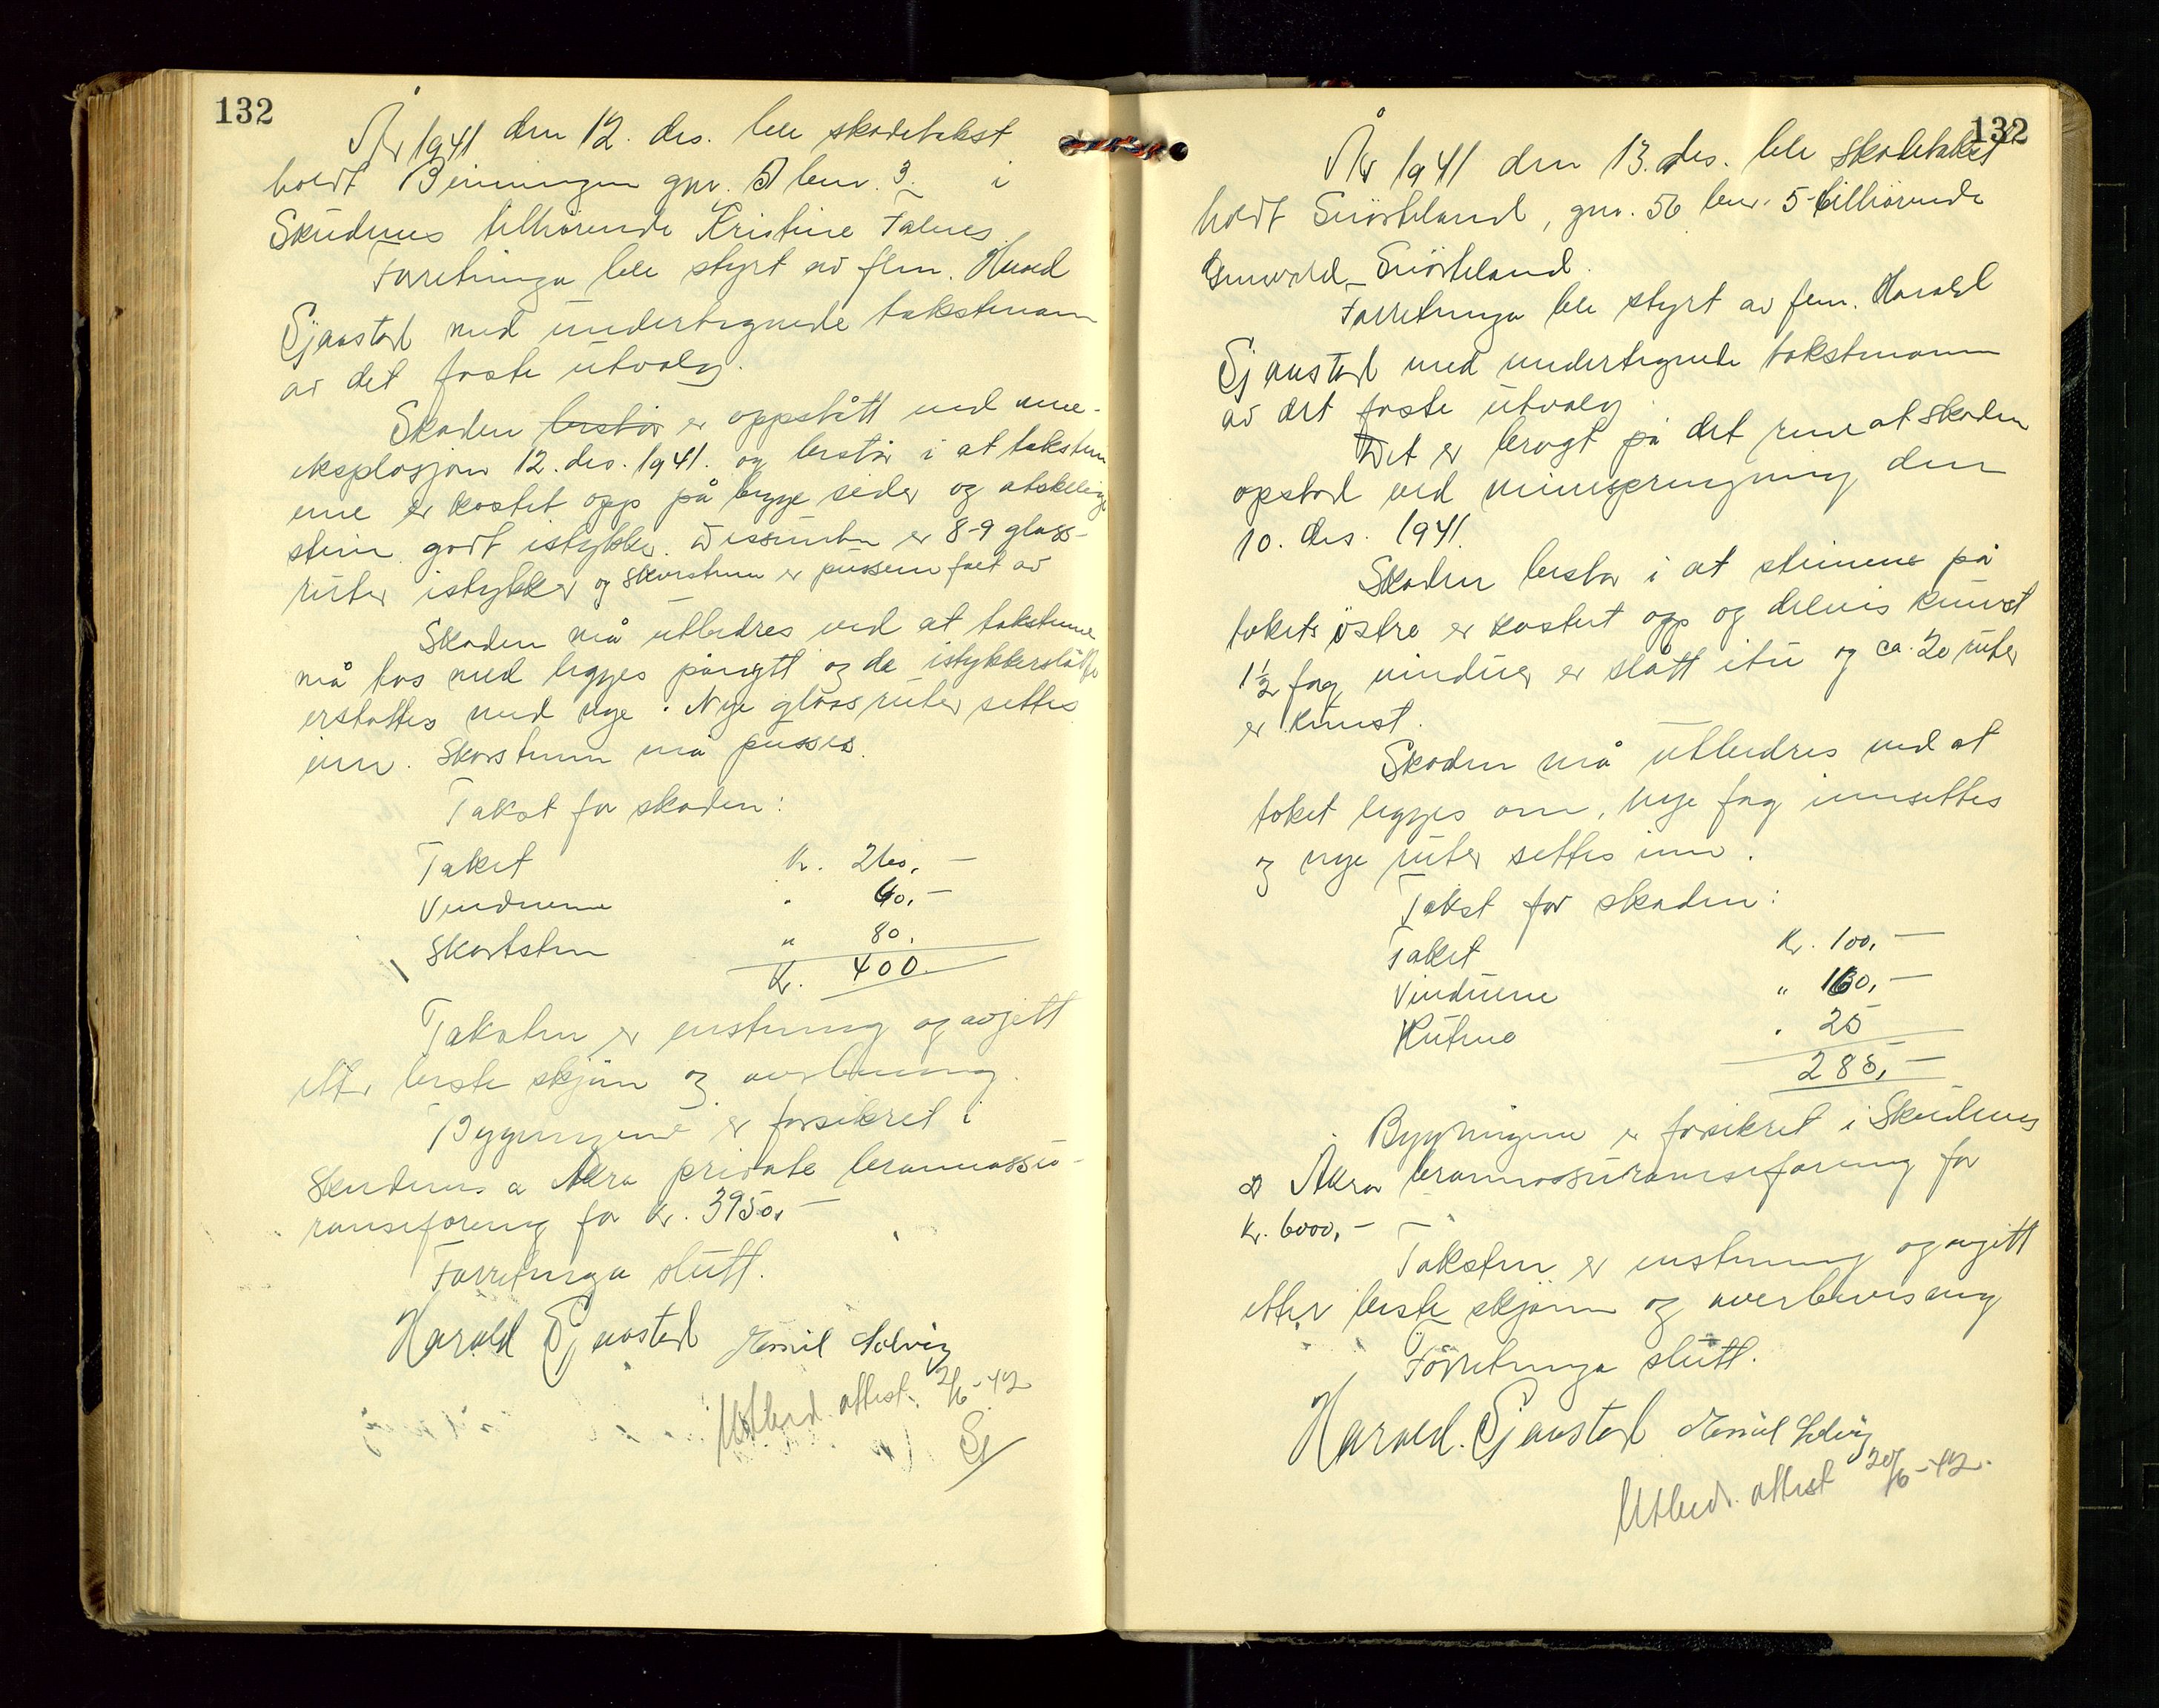 132
År 1941 den 12. des. ble skadetakst
holdt Binningen gnr. 51 bnr. 3. i
Skudnes tilhørende Kristine Falnes.
Forretninga ble styrt av flm. Harald
Sjaastad med undertegnede takstmenn
av det faste utvalg.
Skaden består er oppstått ved mine-
eksplosjon 12. des. 1941. og består i at takstein
ene er kastet opp på begge sider og atskillige
stein gått istykker. Dessuten er 8-9 glass-
ruter istykker og skorsteinen er pussen falt av
Skaden må utbedres ved at taksteinene
må tas ned legges pånytt og de istykkerslåtte
erstattes med nye. Nye glassruter settes
inn. Skorsteinen må pusses.
Takst for skaden:
Taket Kr. 260,-
Vinduene " 60,-
Skorstein " 80.
Kr. 400.
Taksten er enstemmig og avgitt
etter beste skjønn og overbevisning.
Bygningene er forsikret i
Skudenes & Åkra private brannassu-
ranseforening for kr. 3950,-
Forretninga slutt.
Harald Sjaastad Emil Solvig
Utbed. attest. 2/6-42
Sj
132
År 1941 den 13. des. ble skadetakst
holdt Snørteland, gnr. 56 bnr. 5 tilhørende
Snørteland.
Forretninga ble styrt av flm. Harald
Sjaastad med undertegnede takstmenn
av det faste utvalg.
Det er bragt på det rene at skaden
opstod ved minespregning den
10. des. 1941.
Skaden består i at steinene på
takets østre er kastet opp og delvis knust
1½ fag vinduer er slått itu og ca. 20 ruter
er knust.
Skaden må utbedres ved at
taket legges om, nye fag innsettes
og nye ruter settes inn.
Takst for skaden:
Taket Kr. 100,-
Vinduene " 160,-
Rutene " 25
285,-
Bygningene er forsikret i Skudenes
& Åkra brannassuranseforening for
Kr. 6000,-
Taksten er enstemmig og avgitt
etter beste skjønn og overbevisning
Forretninga slutt.
Harald Sjaastad Emil Solvig
Utbed. attest 20/6-42.